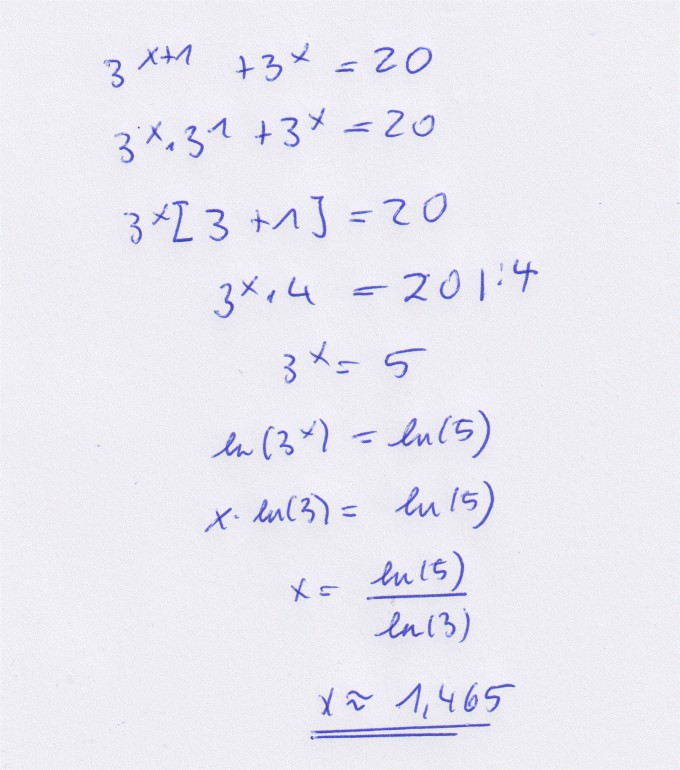 3^{x+1} + 3^x = 20
3^x · 3^1 + 3^x = 20
3^x [3 + 1] = 20
3^x · 4 = 20 | : 4
3^x = 5
ln(3^x) = ln(5)
x · ln(3) = ln(5)
x = \frac{ln(5)}{ln(3)}
x ≈ 1,465